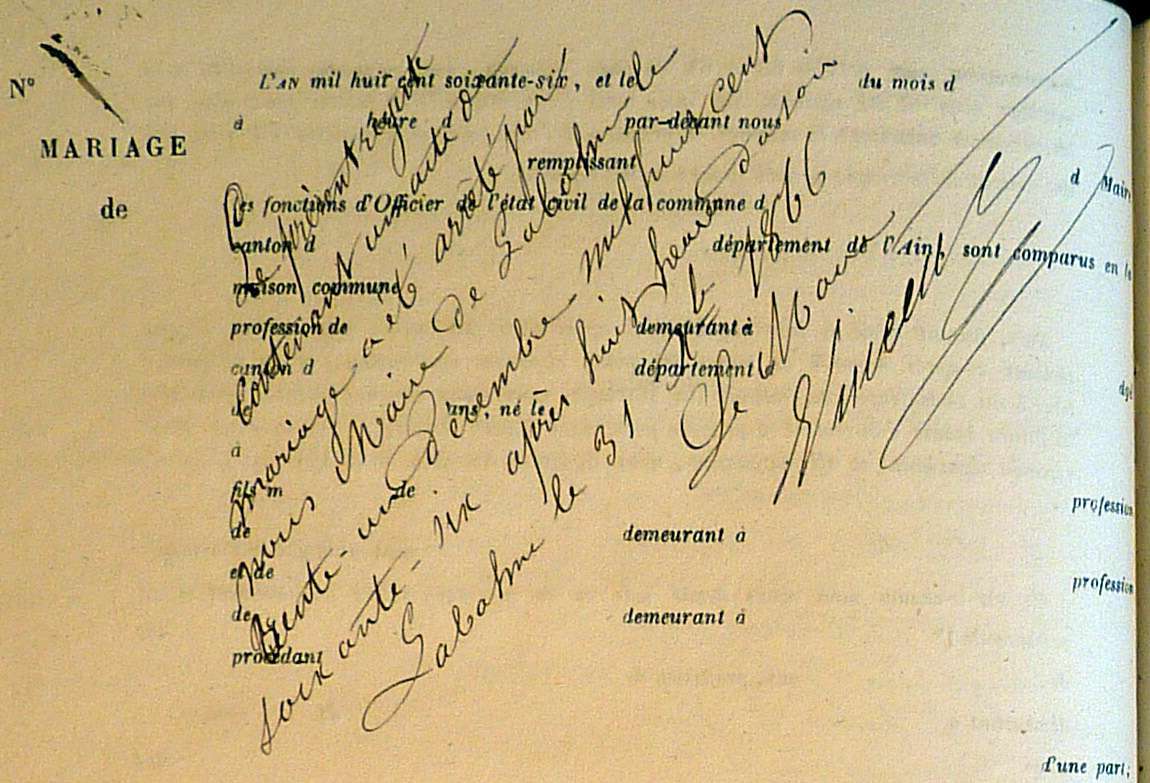 N°
MARIAGE
de
L'AN mil huit cent soixante-six, et le du mois d
à heure d par-devant nous
remplissant
d Maire
les fonctions d'Officier de l'état civil de la commune d
canton d département de l'Ain, sont comparus en la
maison commune
profession de demeurant à
canton d département d
âgé
d ans, né le
à
fils m de
profession
de demeurant à
et de
profession
de demeurant à
procédant
d'une part;
Le présent registre
contenant un acte de
mariage a été arrêté par
nous Maire de Labalme le
trente-un décembre mil huit cent
soixante-six après huit heures du soir
Labalme le 31 Xbre 1866
Le Maire